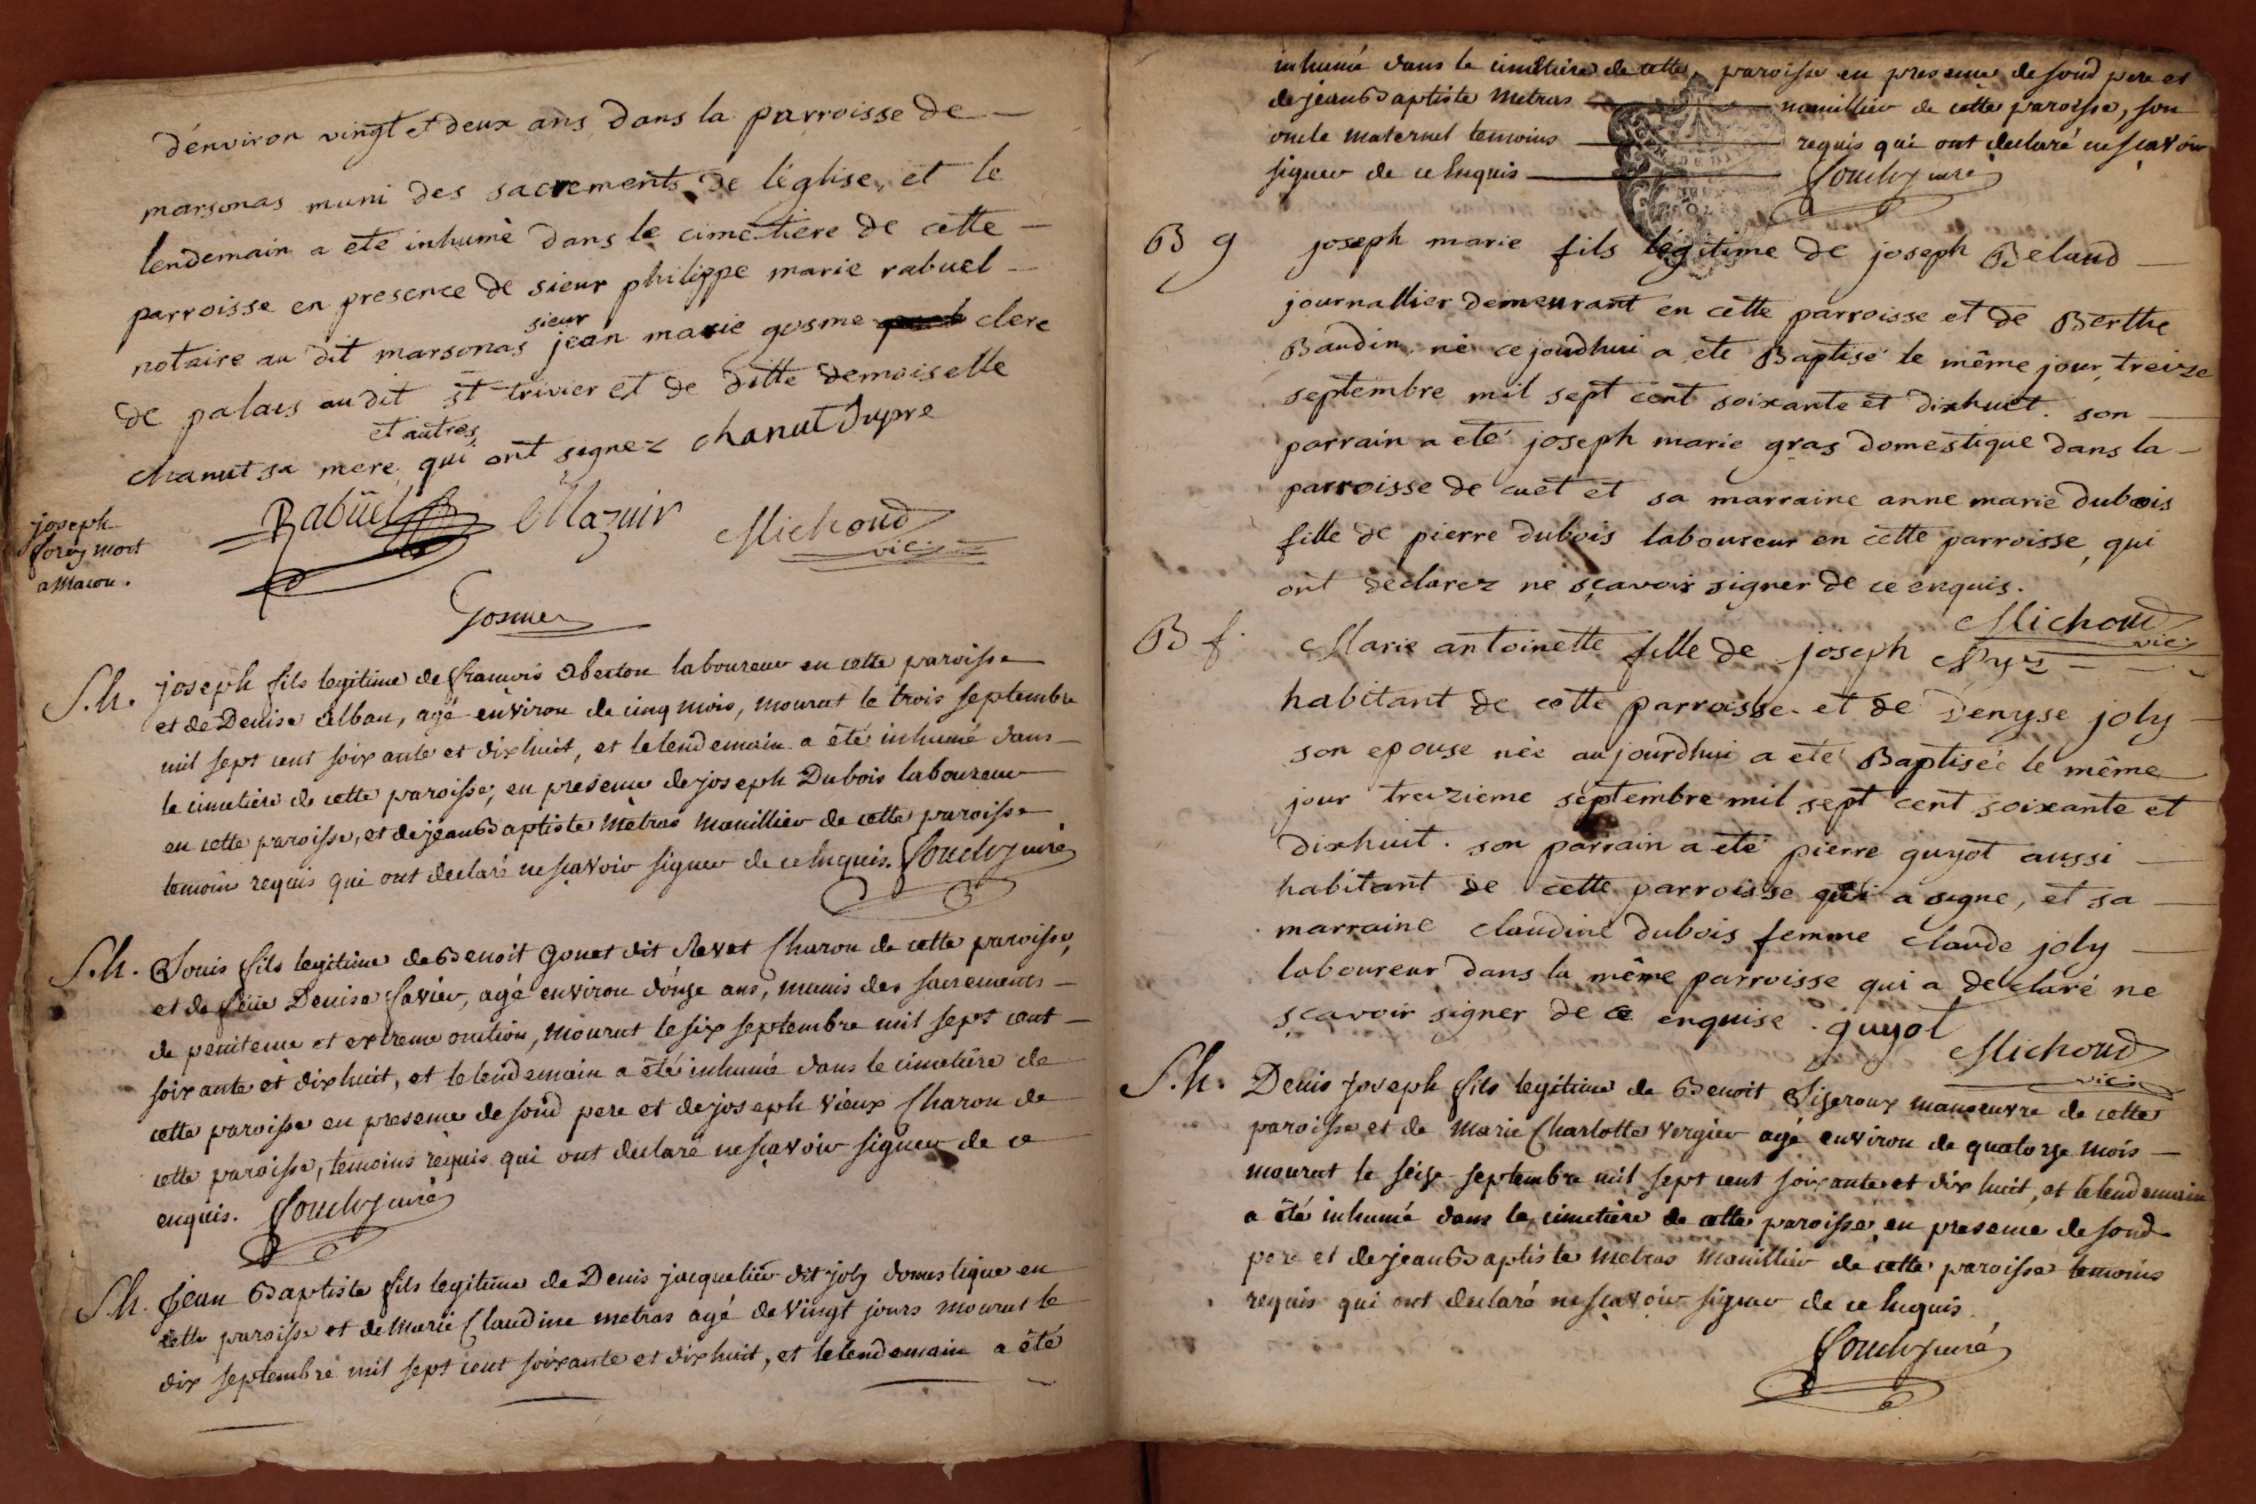 d'environ vingt et deux ans dans la parroisse de
marsonas muni des sacrements de l'église, et le
lendemain a eté inhumé dans le cimetiere de cette
parroisse en presence de sieur philippe marie rabuel
notaire au dit marsonas sieur jean marie gosme clerc
de palais audit st trivier et de ditte demoiselle
chanut sa mere et autres qui ont signez chanut Dupre
Rabüel Mazuir Michoud vic:
joseph
mort
a Macon.
Gosme
S.h. joseph fils legitime de francois oberton laboureur en cette paroisse
et de Denise alban, agé environ de cinq mois, mourut le trois septembre
mil sept cent soixante et dixhuit, et le lendemain a été inhumé dans
le cimetiere de cette paroisse, en presence de joseph Dubois laboureur
en cette paroisse, et de jean Baptiste Metras Manillier de cette paroisse
temoins requis qui ont declaré ne sçavoir signer de ce Enquis. curé
S.h. Louis fils legitime de Benoit Gonet dit Revet Charon de cette paroisse,
et de feüe Denise favier, agé environ d'onze ans, munis des sacrements
de penitence et extreme onction, mourut le six septembre mil sept cent
soixante et dixhuit, et le lendemain a été inhumé dans le cimetiere de
cette paroisse en presence de sond pere et de joseph vieux Charon de
cette paroisse, temoins requis qui ont declaré ne sçavoir signer de ce
enquis. curé
S.h. Jean Baptiste fils legitime de Denis jacquelin dit joly domestique en
cette paroisse et de Marie Claudine metras agé de vingt jours mourut le
dix septembre mil sept cent soixante et dixhuit, et le lendemain a été
inhumé dans le cimetiere de cette paroisse en presence de sond pere et
de jean Baptiste Metras manillier de cette paroisse, son
oncle maternel temoins requis qui ont declaré ne sçavoir
signer de ce Enquis curé
B g joseph marie fils légitime de joseph Belaud
journallier demeurant en cette parroisse et de Berthe
Baudin, né ce joudhui a eté Baptisé le même jour, treize
septembre mil sept cent soixante et dixhuit. son
parrain a eté joseph marie gras domestique dans la
parroisse de cuet et sa marraine anne marie dubois
fille de pierre dubois laboureur en cette parroisse, qui
ont declarez ne sçavoir signer de ce enquis.
Michoud vic:
B f. Marie antoinette fille de joseph Pyz
habitant de cette parroisse et de Denyse joly
son epouse née aujourdhui a eté Baptisée le même
jour treizieme septembre mil sept cent soixante et
dixhuit. son parrain a eté pierre guyot aussi
habitant de cette parroisse qui a signe, et sa
marraine claudine dubois femme claude joly
laboureur dans la même parroisse qui a declaré ne
sçavoir signer de ce enquise. guyot
Michoud vic:
S.h. Denis Joseph fils legitime de Benoit Ligeroux manoeuvre de cette
paroisse et de Marie Charlotte vergier agé environ de quatorze mois
mourut le seize septembre mil sept cent soixante et dix huit, et le lendemain
a été inhumé dans le cimetiere de cette paroisse en presence de sond
pere et de jean Baptiste Metras Manillier de cette paroisse temoins
requis qui ont declaré ne sçavoir signer de ce Enquis
curé